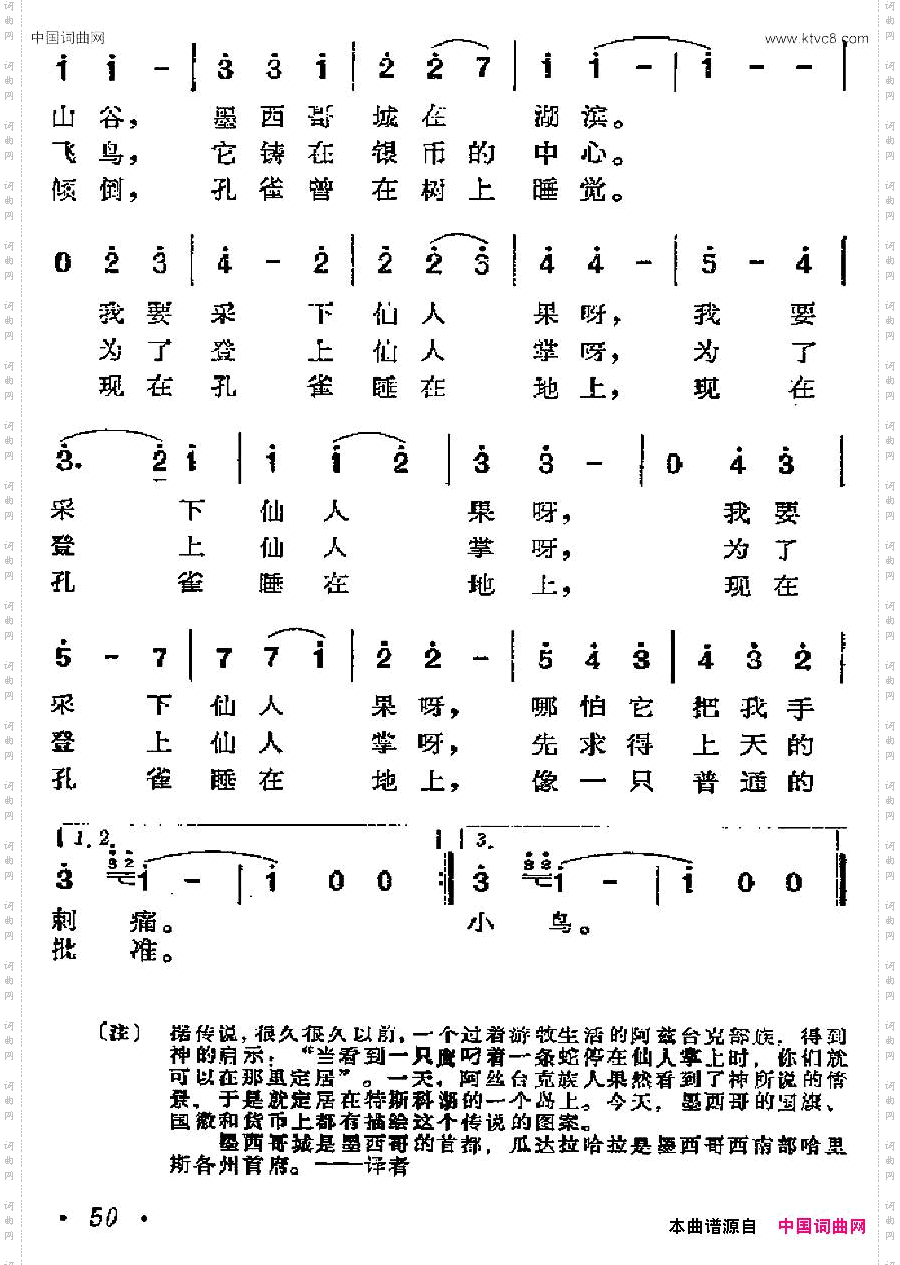 中国词曲网 www.ktvc8.com
1 1 - | 3 3 1 | 2 2 7 | 1 1 - | 1 - - |
山谷， 墨西哥 城在 湖滨。
飞鸟， 它铸在 银币的 中心。
倾倒， 孔雀曾 在树上 睡觉。
0 2 3 | 4 - 2 | 2 2 3 | 4 4 - | 5 - 4 |
我要 采下 仙人 果呀， 我要
为了 登上 仙人 掌呀， 为了
现在 孔雀 睡在 地上， 现在
3. 2 1 | 1 1 2 | 3 3 - | 0 4 3 |
采下 仙人 果呀， 我要
登上 仙人 掌呀， 为了
孔雀 睡在 地上， 现在
5 - 7 | 7 7 1 | 2 2 - | 5 4 3 | 4 3 2 |
采下 仙人 果呀， 哪怕它 把我手
登上 仙人 掌呀， 先求得 上天的
孔雀 睡在 地上， 像一只 普通的
1. 2. 3.
3 3 2 1 - | 1 0 0 :| 3 3 2 1 - | 1 0 0 |
刺痛。 小鸟。
批准。
〔注〕 据传说，很久很久以前，一个过着游牧生活的阿兹台克部族，得到
神的启示：“当看到一只鹰叼着一条蛇停在仙人掌上时，你们就
可以在那里定居”。一天，阿兹台克族人果然看到了神所说的情
景，于是就定居在特斯科湖的一个岛上。今天，墨西哥的国旗、
国徽和货币上都有描绘这个传说的图案。
墨西哥城是墨西哥的首都，瓜达拉哈拉是墨西哥西南部哈里
斯各州首席。——译者
· 50 ·
本曲谱源自 中国词曲网